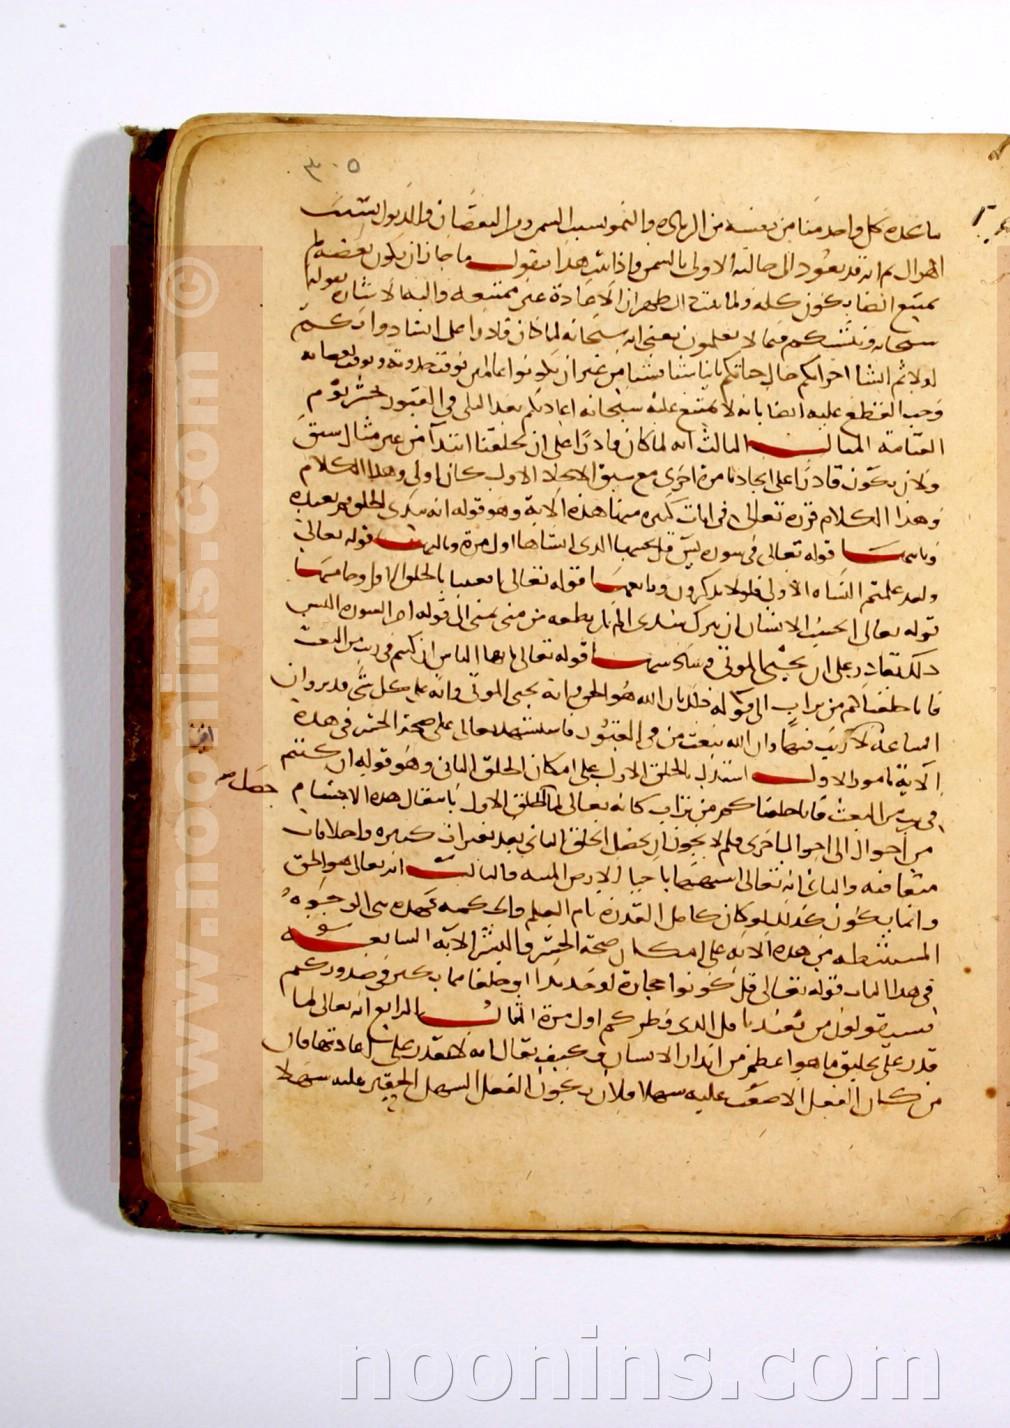 ٣٠٥
ما يجده كل واحد منا من نفسه من الزيادة والنمو بسبب السمن ومن النقصان والذبول بسبب
الهزال ثم انه قد يعود الى حالته الاولى بالسمن واذا ثبت هذا فنقول ما جاز ان يكون بعضه لم
يمتنع ايضا يكون كله ولما ثبت ذلك ظهر ان الاعادة غير ممتنعة واليه الاشارة بقوله
سبحانه وننشئكم فيما لا تعلمون يعني انه سبحانه لما كان قادرا على انشاء ذواتكم
اولا ثم انشاء اجزائكم حال حياتكم ثانيا شيئا فشيئا من غير ان تكونوا عالمين بوقت حدوثه وبوقت نقصانه
وجب القطع عليه ايضا بانه لا يمتنع عليه سبحانه اعادتكم بعد البلى في القبور لحشر يوم
القيامة المثال الثالث انه لما كان قادرا على ان يخلقنا ابتداء من غير مثال سبق
ولان يكون قادرا على ايجادنا مرة اخرى مع سبق الايجاد الاول كان اولى وهذا الكلام
وهذا الكلام قرره تعالى في ايات كثيرة منها هذه الاية وهو قوله انه يبدؤ الخلق ثم يعيده
وثانيها قوله تعالى في سورة يس قل يحييها الذي انشاها اول مرة وثالثها قوله تعالى
ولقد علمتم النشاة الاولى فلولا تذكرون ورابعها قوله تعالى افعيينا بالخلق الاول وخامسها
قوله تعالى ايحسب الانسان ان يترك سدى الم يك نطفة من مني يمنى الى قوله اليس
ذلك بقادر على ان يحيي الموتى وسادسها قوله تعالى يا ايها الناس ان كنتم في ريب من البعث
فانا خلقناكم من تراب الى قوله ذلك بان الله هو الحق وانه يحيي الموتى وانه على كل شي قدير وان
الساعة لا ريب فيها وان الله يبعث من في القبور فاستشهد تعالى على صحة الحشر في هذه
الاية بامور الاول استدل بالخلق الاول على امكان الخلق الثاني وهو قوله ان كنتم
في ريب من البعث فانا خلقناكم من تراب كانه تعالى لما الخلق الاول بانتقال هذه الاجسام
حصل
من احوال الى احوال اخرى فلم لا يجوز ان يحصل الخلق الثاني بعد تغيرات كثيرة واختلافات
متعاقبة والثاني انه تعالى شبهها باحياء الارض الميتة والثالث انه تعالى هو الحق
وانما يكون كذلك لو كان كامل القدرة تام العلم والحكمة فهذه هي الوجوه
المستنبطة من هذه الاية على امكان صحة الحشر والنشر الاية السابعة
في هذا الباب قوله تعالى قل كونوا حجارة او حديدا او خلقا مما يكبر في صدوركم
فسيقولون من يعيدنا قل الذي فطركم اول مرة المثال الرابع انه تعالى لما
قدر على تخليق ما هو اعظم من ابدان الانسان فكيف يقال انه لا يقدر على اعادتها فان
من كان الفعل الاصعب عليه سهلا فلان يكون الفعل السهل الحقير عليه سهلا
www.noonins.com ©
noonins.com